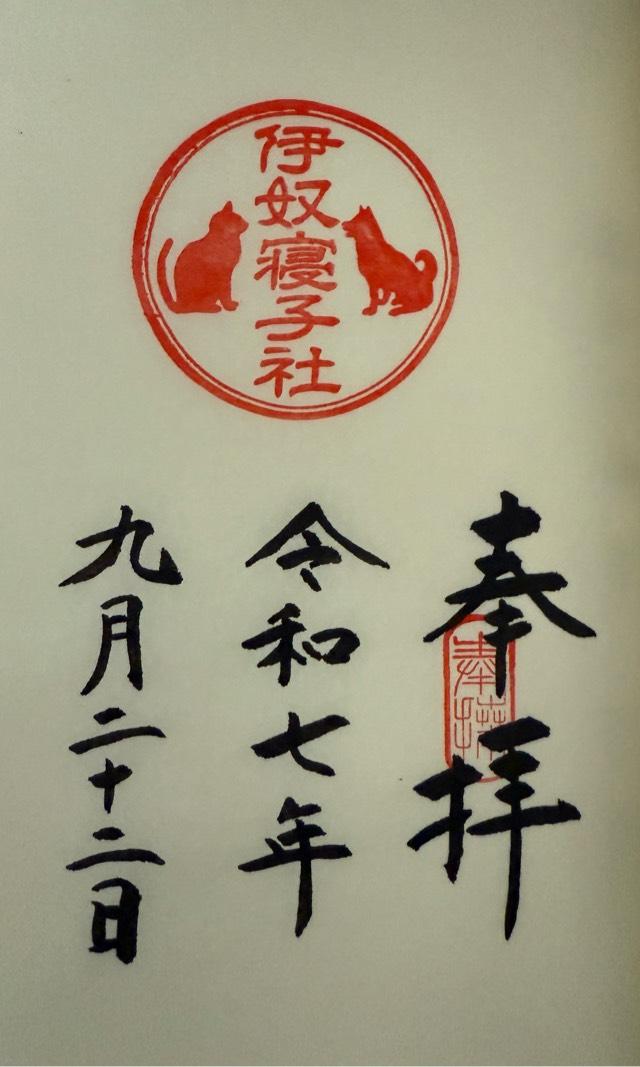 伊奴寝子社
奉拝
奉拝
令和七年
九月二十二日